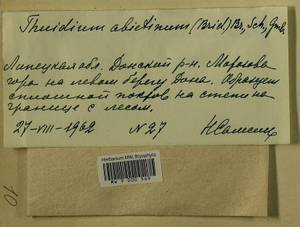 Thuidium abietinum (Brid.) Br., Sch., Gmb.
Липецкая обл. Донский р-н. Морозова
гора на левом берегу Дона. Образует
сплошной покров на степи на
границе с лесом.
27-VIII-1962 N 27
Herbarium MW, Bryophyta
10